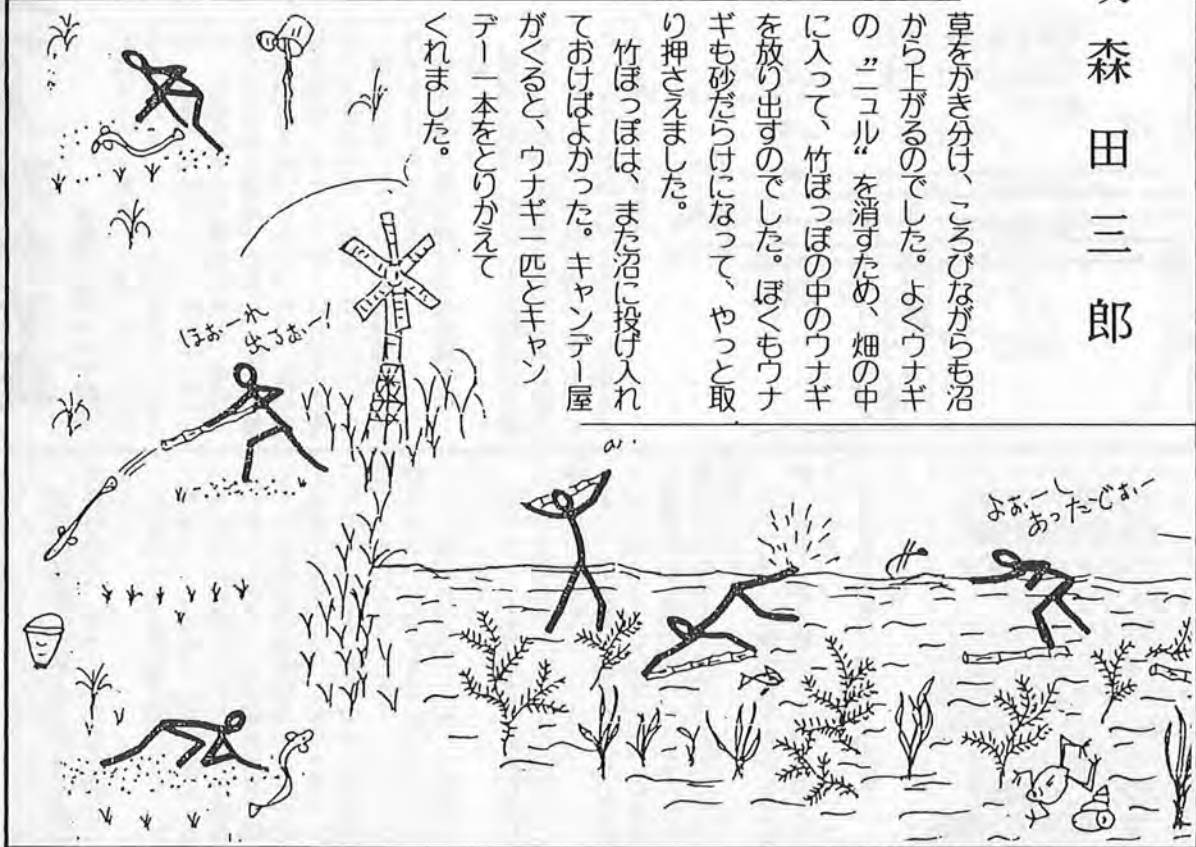 森田三郎
草をかき分け、ころびながらも沼
から上がるのでした。よくウナギ
の〝ニュル〟を消すため、畑の中
に入って、竹ぽっぽの中のウナギ
を放り出すのでした。ぼくもウナ
ギも砂だらけになって、やっと取
り押さえました。
竹ぽっぽは、また沼に投げ入れ
ておけばよかった。キャンデー屋
がくると、ウナギ一匹とキャン
デー一本をとりかえて
くれました。
よぉーし
あったどぉー
ほぉーれ
出るぉー!